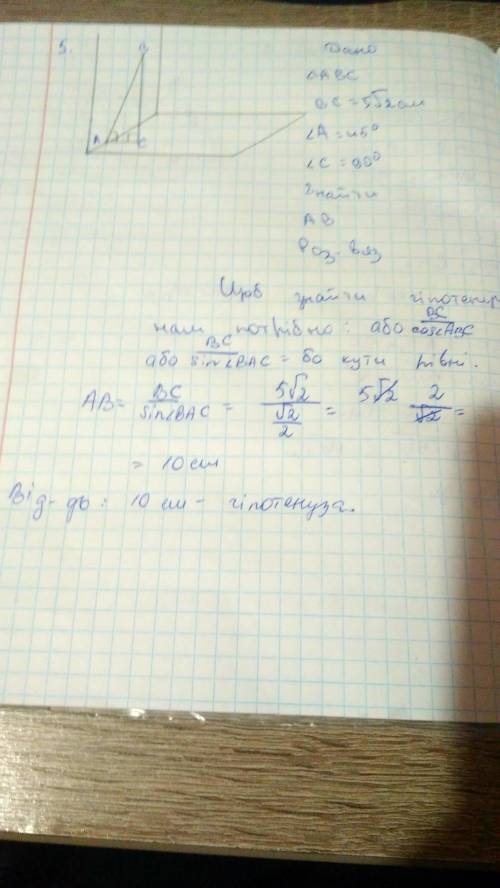 5.
B
A
C
Дано
△ABC
BC = 5√2 см
∠A = 45°
∠C = 90°
Знайти
AB
Роз-вяз
Щоб знайти гіпотену
нам потрібно: або BC/cos∠ABC
або BC/sin∠BAC = бо кути рівні.
AB = BC/sin∠BAC = 5√2/(√2/2) = 5√2 2/√2 =
= 10 см
Від-дь: 10 см - гіпотенуза.